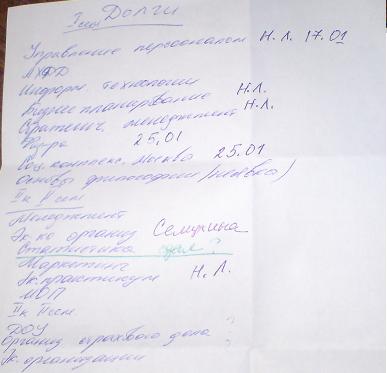 I сем Долги
Управление персоналом Н.Л. 17.01
АХФД
Информ. технологии
Бизнес планирование Н.Л.
Стратегич. менеджмент Н.Л.
25.01
Соц. комплекс. Москва 25.01
Основы философии (неявка)
II к II сем
Менеджмент
Эк-ка организ Семухина
Статистика сдал?
Маркетинг
Эк. практикум Н.Л.
МСП
II к II сем
ДОУ ?
Организ страхового дела ?
Эк. организации